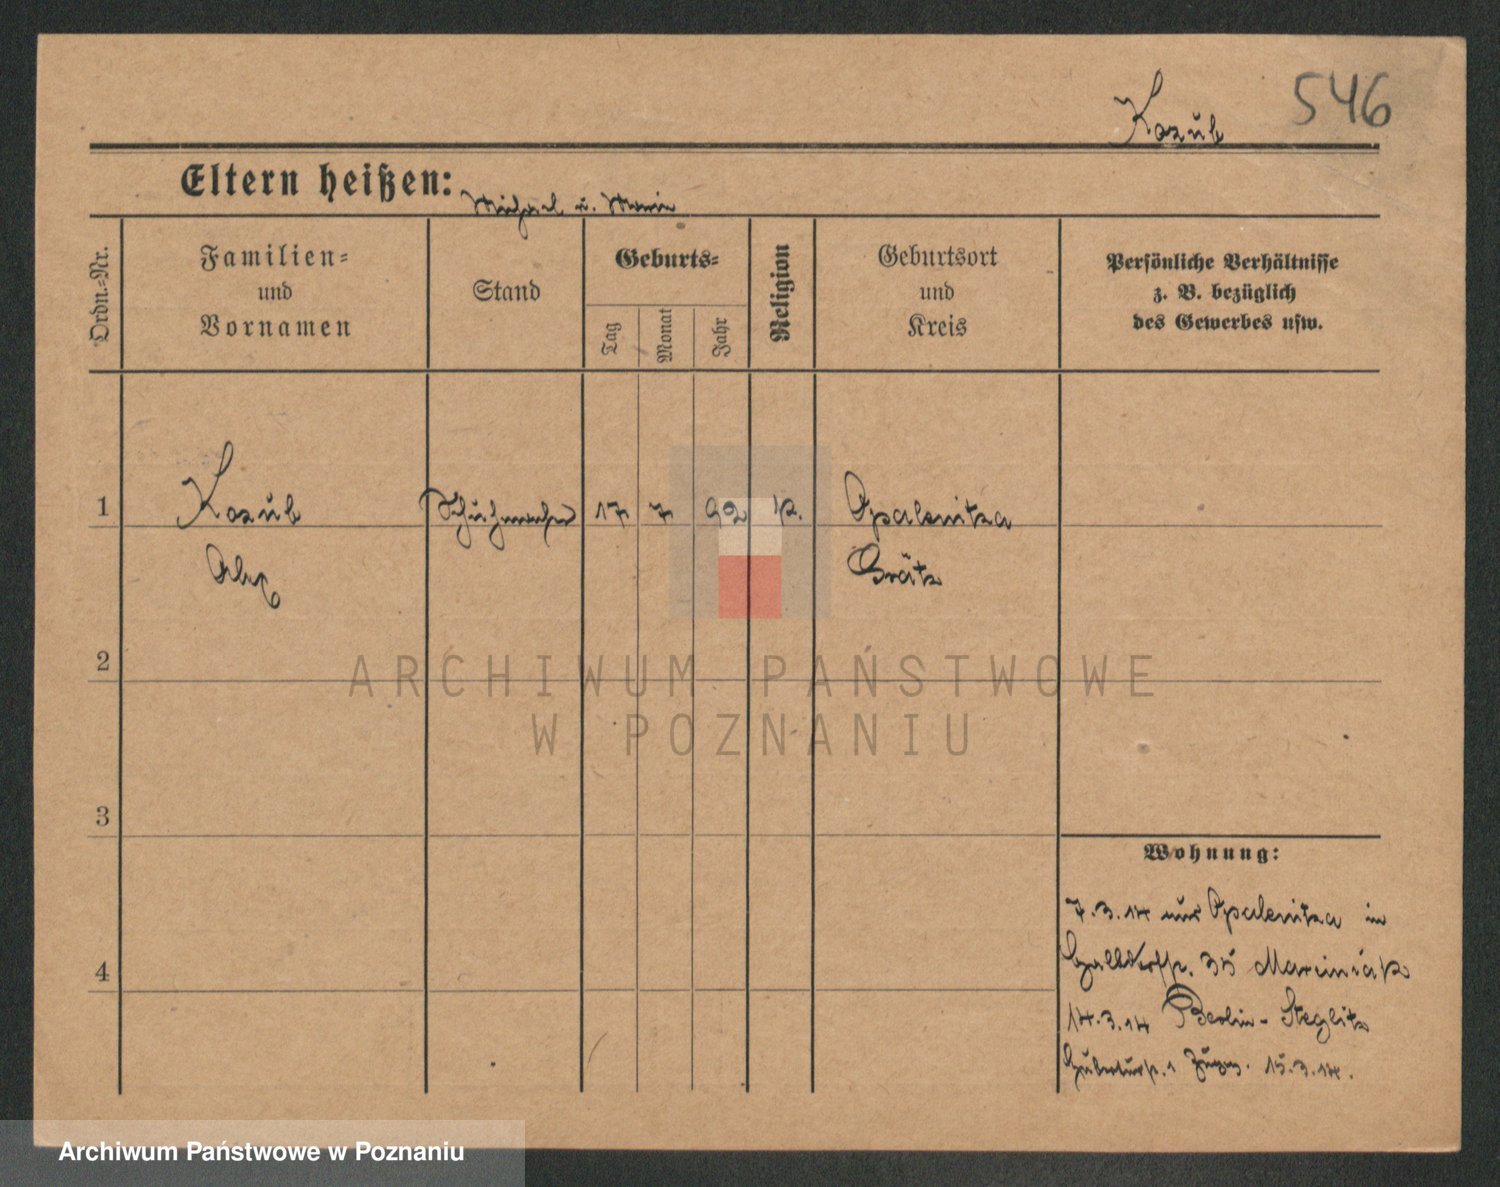 546
Kozub
Eltern heißen: Michael u. Maria
Ordn.-Nr.
Familien-
und
Vornamen
Stand
Geburts-
Tag
Monat
Jahr
Religion
Geburtsort
und
Kreis
Persönliche Verhältnisse
z. B. bezüglich
des Gewerbes usw.
1 Kozub Schuhmacher 17 7 92 k. Opalenitza
Alex Grätz
2
ARCHIWUM PAŃSTWOWE
W POZNANIU
3
Wohnung:
7.3.14 aus Opalenitza in
35 Marciniak
4
14.3.14 Berlin-Steglitz
15.3.14.
Archiwum Państwowe w Poznaniu